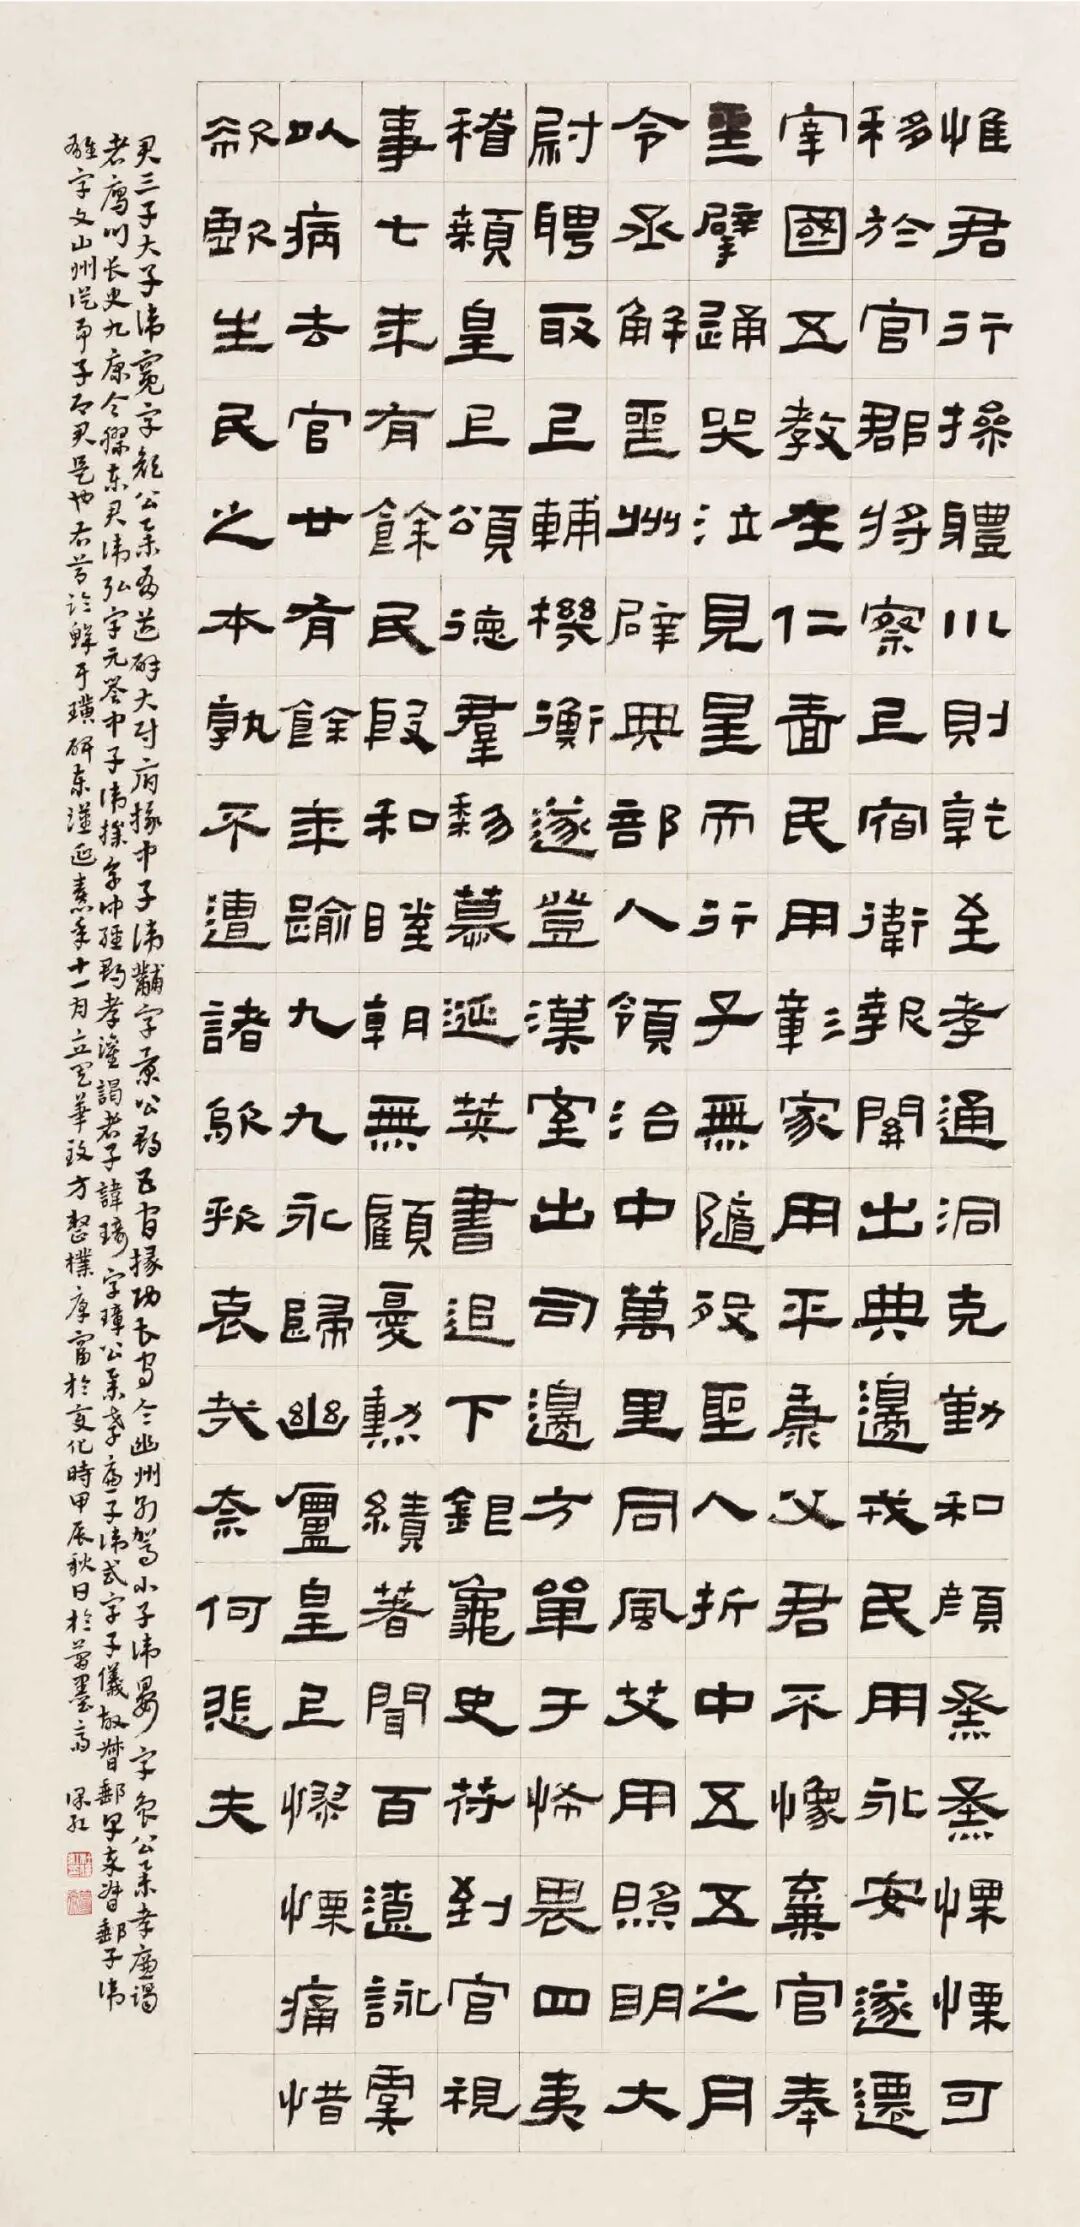 惟君行操體川則乾至孝通洞克勤和顏烝烝慄慄可
移於官郡將察上宿衛報關出典邊戎民用永安遂遷
宰國五教在仁嗇民用彰家用平康父君不像棄官奉
喪擗踊哭泣見星而行子無隨歿聖人折中五五之月
令丞解喪州辟典部入領治中萬里同風艾用照明大
尉聘取上輔機衡遂登漢室出司邊方單于怖畏四夷
稽顙皇上頌德群黎慕涎英書追下銀龜史符到官視
事七年有餘民殷和睦朝無顧憂勳績著聞百遼詠虞
以病去官廿有餘年踰九九永歸幽廬皇上憀慄痛惜
欷歔生民之本孰不遭諸嗚呼哀哉奈何悲夫
君三子大子諱寬字顏公舉有道辟大尉府掾中子諱黼字景公郡五官掾功曹守令幽州別駕小子諱晏字魯公舉孝廉謁
者雁門長史九原令膠東君諱弘字元譽中子諱操字仲經郡孝灌謁者子諱琦字瑋公舉孝廉子諱式字子儀故督郵早卒督郵子諱
雄字文山州從事子君是也右節臨鮮于璜碑東漢延熹年十一月立筆致方整樸厚富於變化時甲辰秋日於墨齋